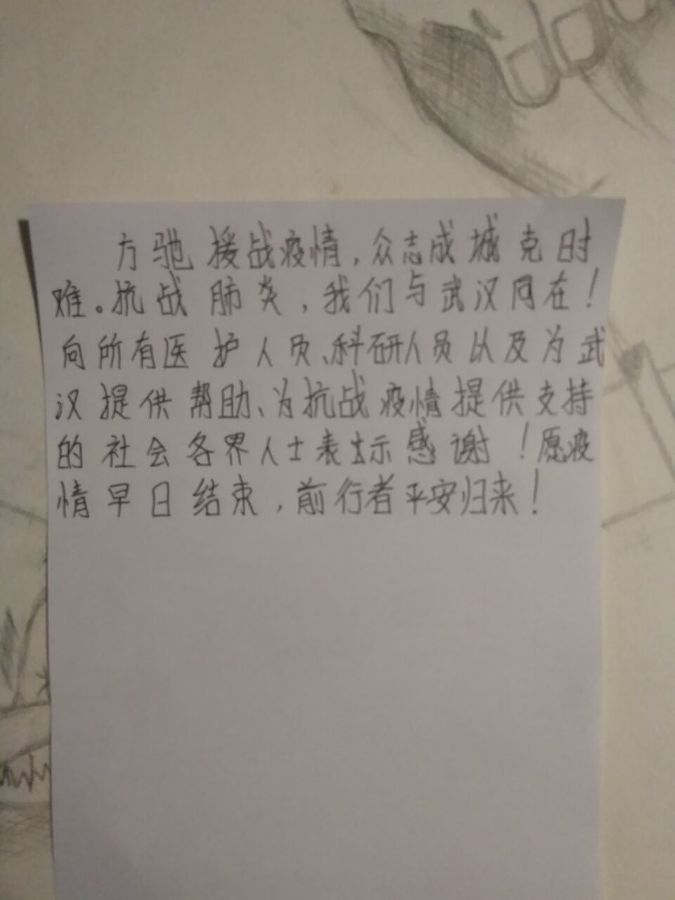 方驰援战疫情，众志成城克时
难。抗战肺炎，我们与武汉同在！
向所有医护人员、科研人员以及为武
汉提供帮助、为抗战疫情提供支持
的社会各界人士表示感谢！愿疫
情早日结束，前行者平安归来！